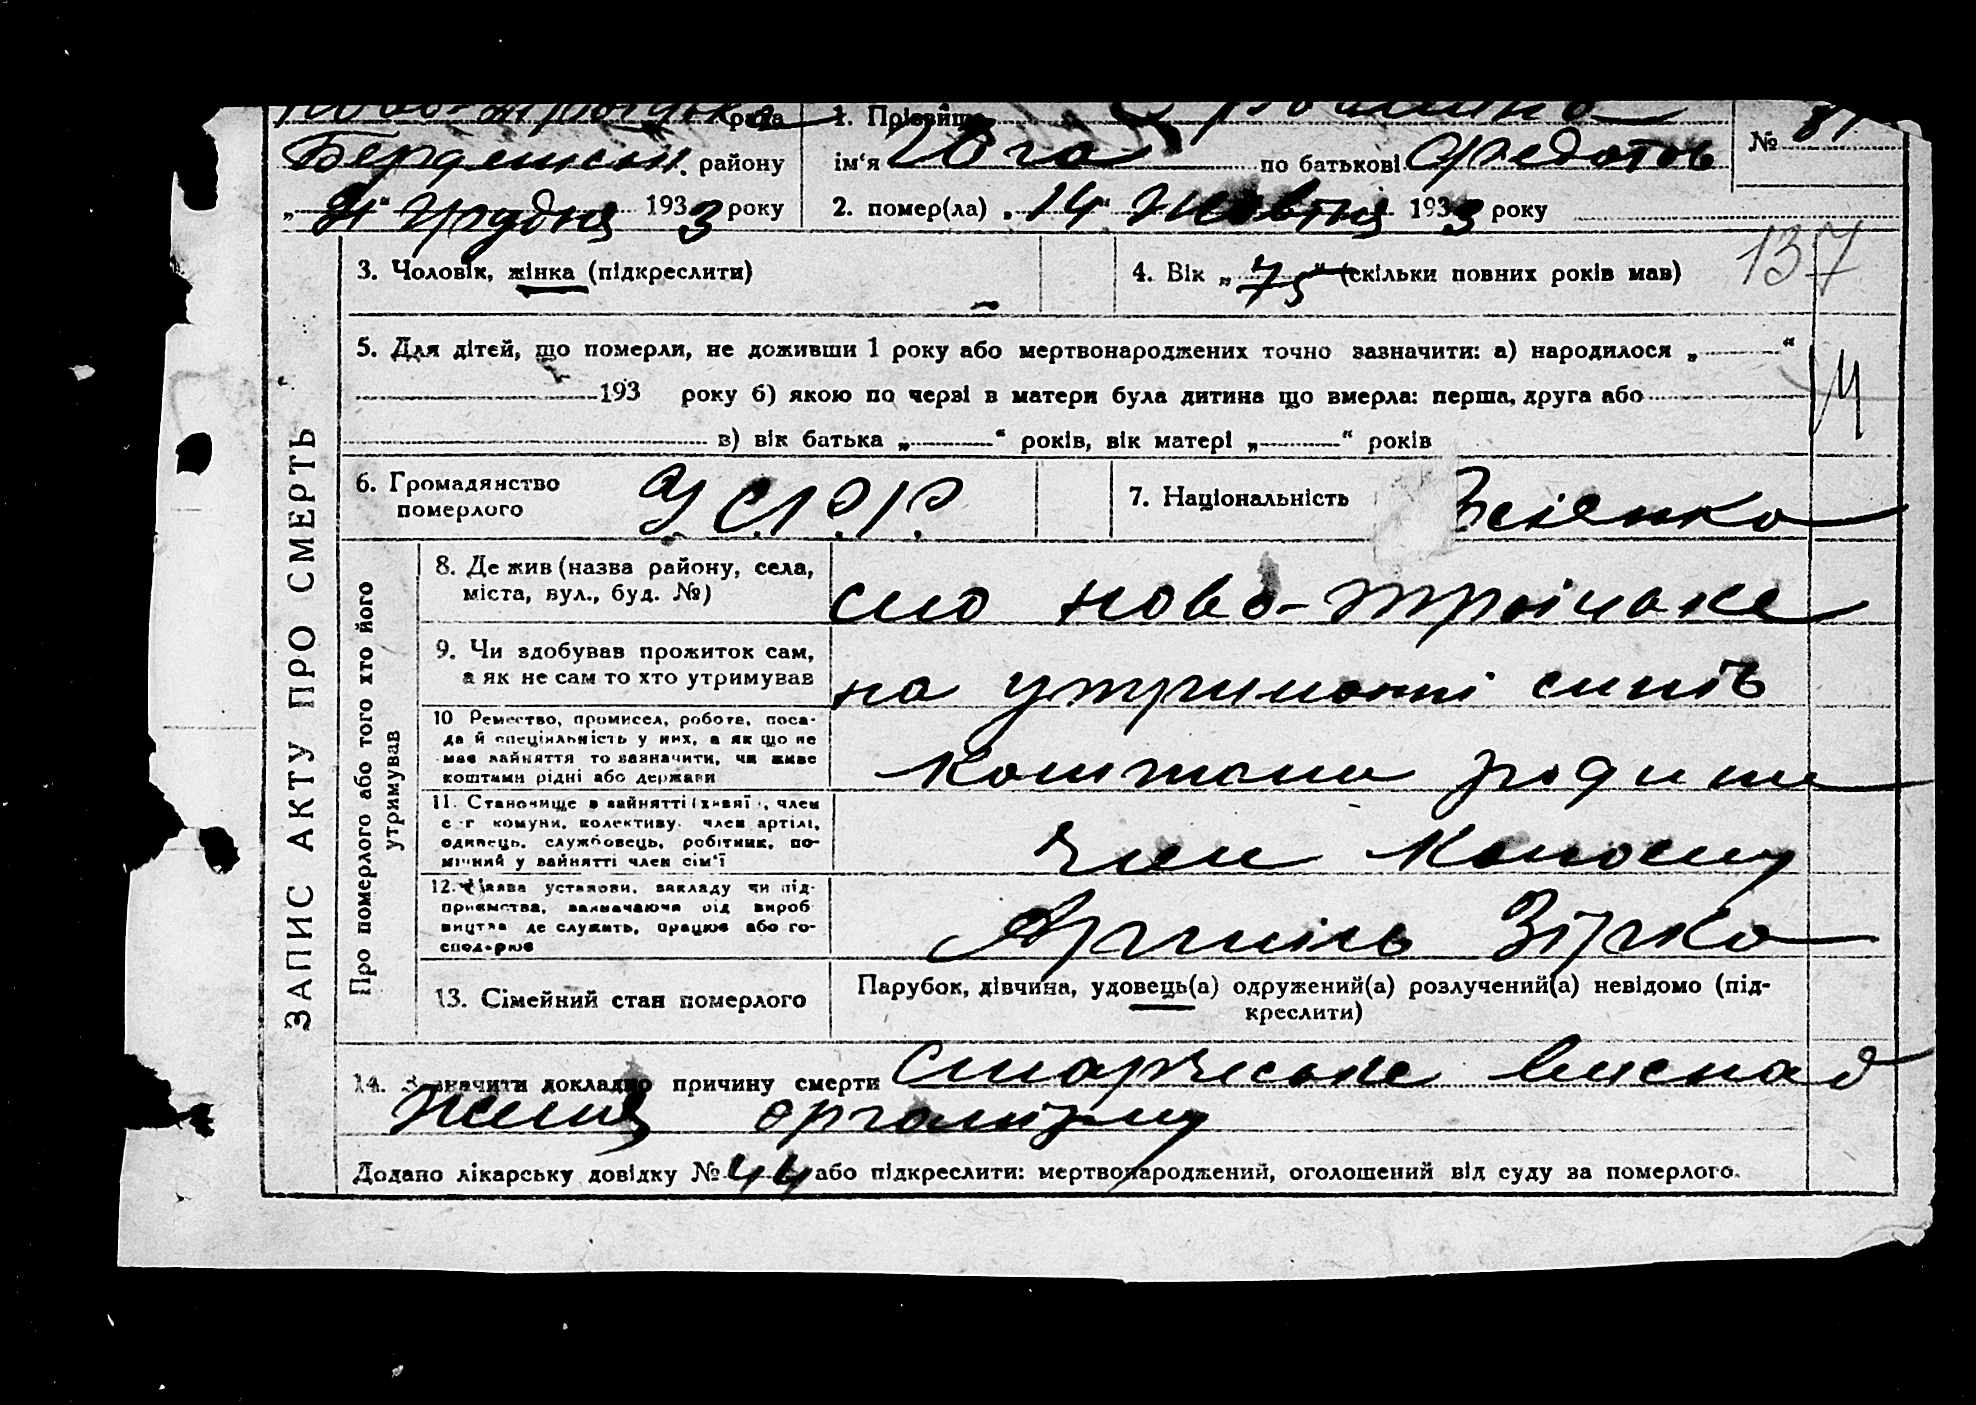 рада 1. Прізвище № 81
Бердянськ. району ім‘я по батькові Федотов
Грудня 1933 року 2. помер(ла) „14“ Жовтня 1933 року
137
3. Чоловік, жінка (підкреслити) 4. Вік „75“ (скільки повних років мав)
5. Для дітей, що померли, не доживши 1 року або мертвонароджених точно зазначити: а) народилося „ “
193 року б) якою по черзі в матери була дитина що вмерла: перша, друга або
в) вік батька „ “ років, вік матері „ “ років
6. Громадянство
померлого
У.С.Р.Р. 7. Національність
ЗАПИС АКТУ ПРО СМЕРТЬ
Про померлого або того хто його
утримував
8. Де жив (назва району, села,
міста, вул., буд. №)
село ново-троіцьке
9. Чи здобував прожиток сам,
а як не сам то хто утримував
на утриманні синів
10 Ремество, промисел, робота, поса-
да й спеціяльність у них, а як що не
має зайняття то зазначити, чи живе
коштами рідні або держави
коштами родини
11. Становище в зайнятті (хазяї), член
с-г комуни, колективу, член артілі,
одинець, службовець, робітник, по-
мічний у зайнятті член сім‘ї
член
12. Назва установи, закладу чи під-
приємства, зазначаючи рід вироб
ництва де служить, працює або го-
сподарює
Артиль Зірка
13. Сімейний стан померлого
Парубок, дівчина, удовець(а) одружений(а) розлучений(а) невідомо (під-
креслити)
14. Зазначити докладно причину смерти Старческе виснад
жения организму
Додано лікарську довідку № 44 або підкреслити: мертвонароджений, оголошений від суду за померлого.